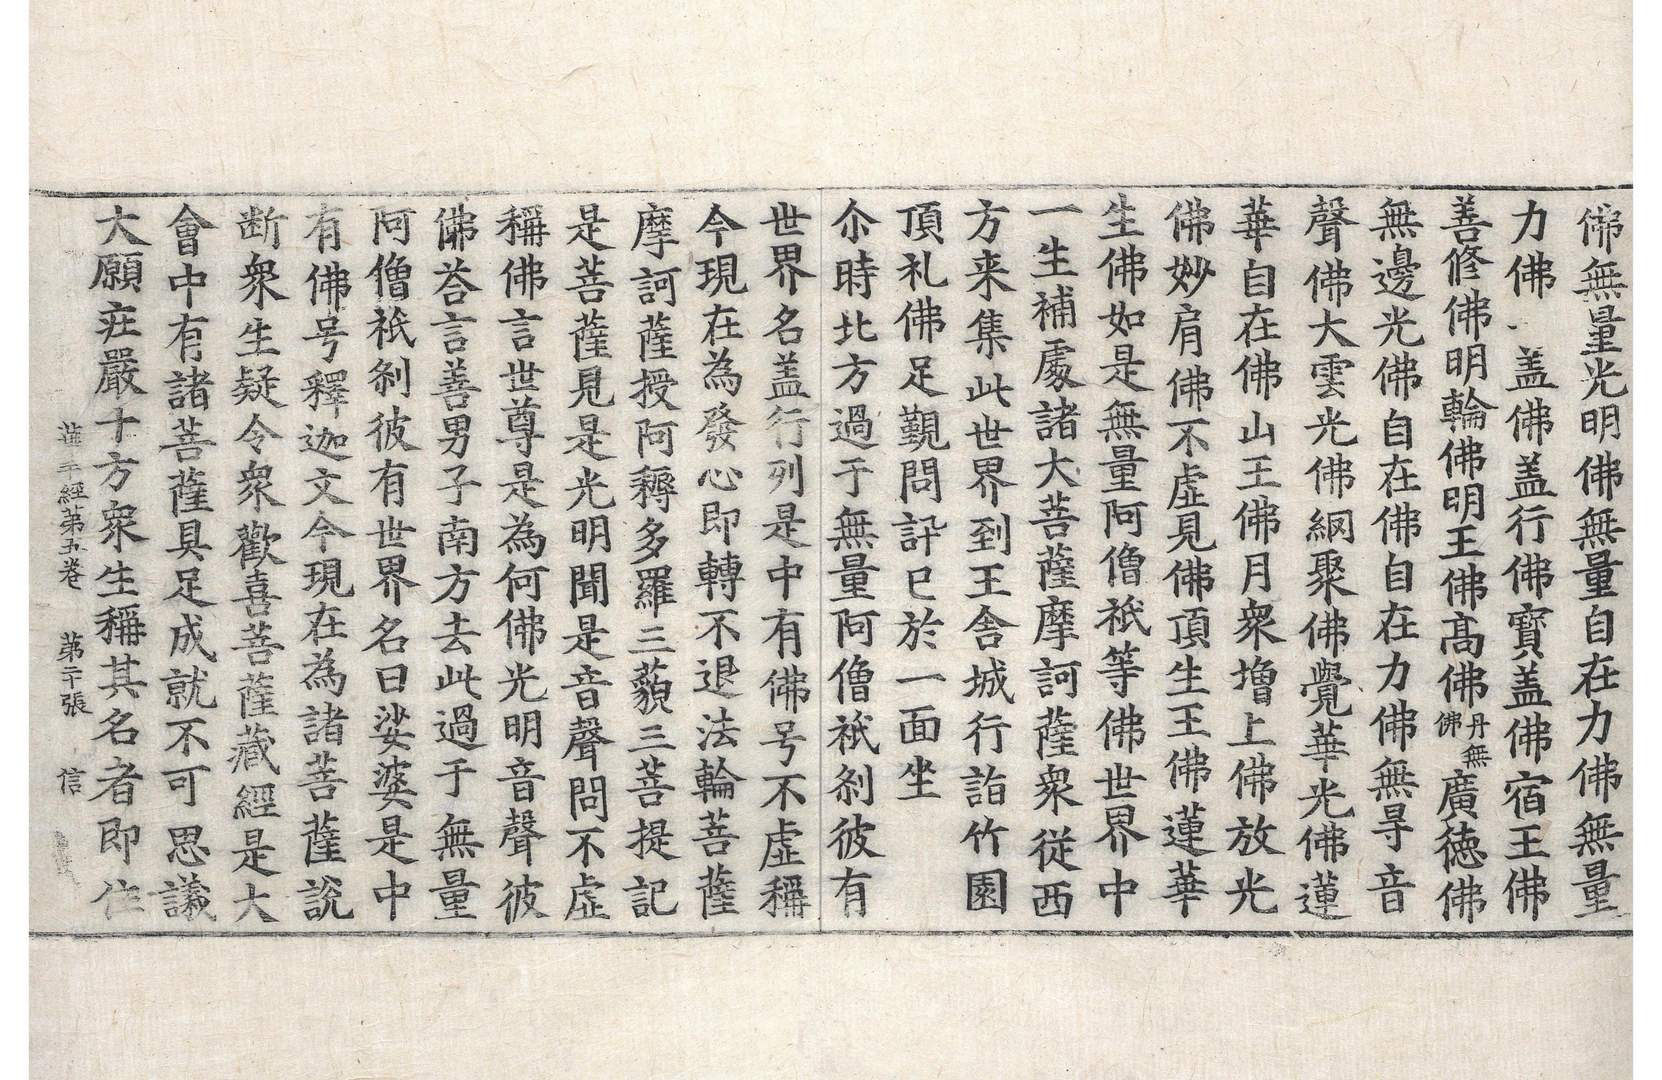 佛無量光明佛無量自在力佛無量
力佛蓋佛盖行佛寶盖佛宿王佛
善修佛明輪佛明王佛髙佛丹無佛廣徳佛
無邊光佛自在佛自在力佛無㝵音
聲佛大雲光佛網聚佛覺華光佛蓮
華自在佛山王佛月衆增上佛放光
佛妙肩佛不虚見佛頂生王佛蓮華
生佛如是無量阿僧祇等佛世界中
一生補處諸大菩薩摩訶薩衆従西
方来集此世界到王舎城行詣竹園
頂礼佛足覲問訊已於一面坐
尒時北方過于無量阿僧祇刹彼有
世界名盖行列是中有佛号不虚稱
今現在為發心即轉不退法輪菩薩
摩訶薩授阿耨多羅三藐三菩提記
是菩薩見是光明聞是音聲問不虚
稱佛言世尊是為何佛光明音聲彼
佛荅言善男子南方去此過于無量
阿僧祇刹彼有世界名曰娑婆是中
有佛号釋迦文今現在為諸菩薩說
断衆生疑令衆歡喜菩薩藏經是大
會中有諸菩薩具足成就不可思議
大願疰嚴十方衆生稱其名者即住
經第五卷 第二十張 信